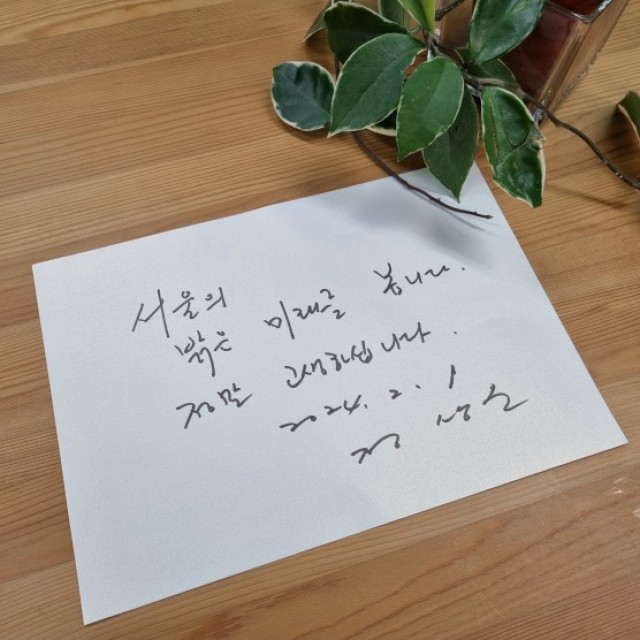 서울의
밝은 미래를 봅니다.
정말 고생하셨습니다.
2024. 2. 1
정